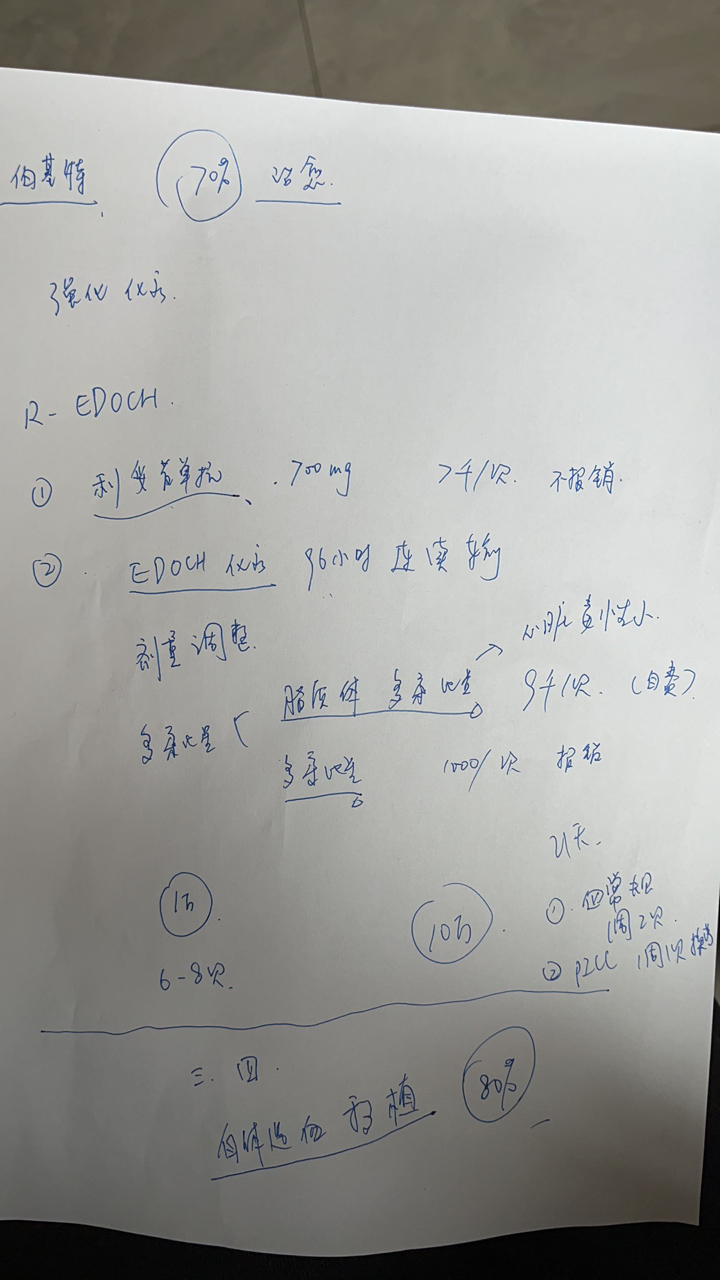 伯基特 70% 治愈.
强化 化疗.
R- EDOCH.
① 利妥昔单抗 . 700mg 7千/次. 不报销.
② . EDOCH 化疗 96小时 连续输
剂量 调整.
→ 心脏毒性小.
脂质体 多柔比星 9千/次. (自费)
多柔比星 {
多柔比星 1000/次 报销
21天.
1万. 10万. ①. 血常规 1周2次.
6-8次. ② PICC 1周1次
三. 四.
自体造血 移植 80%